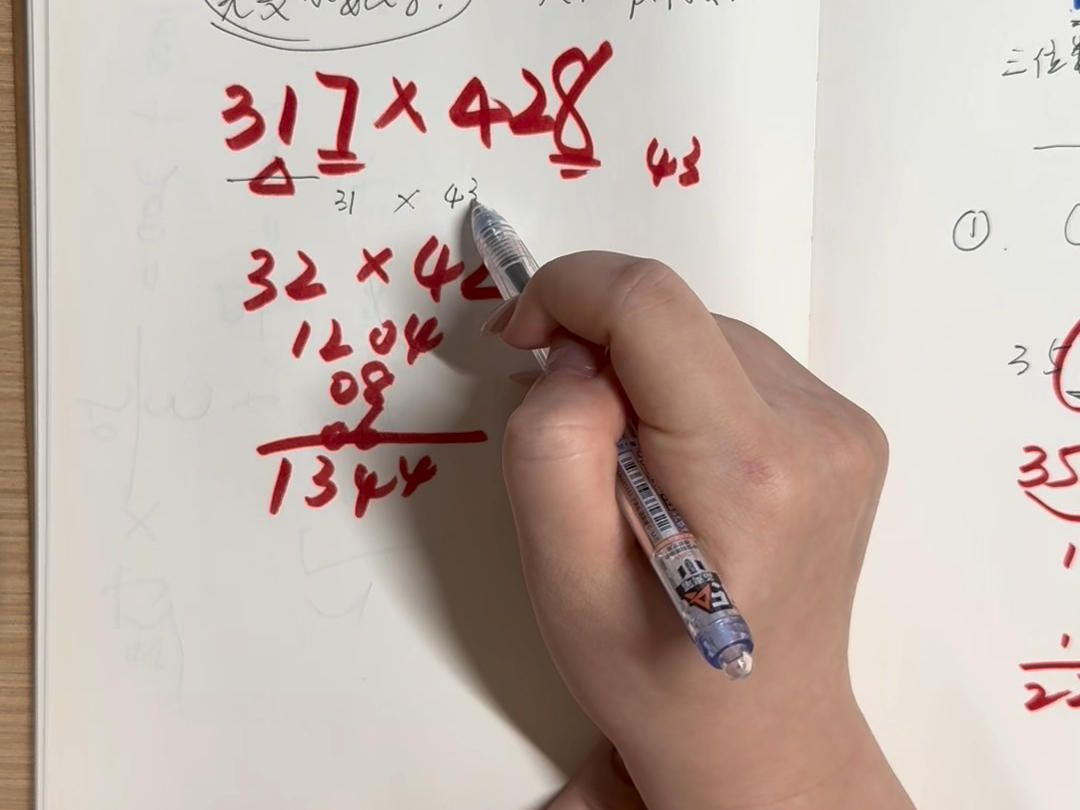 317 × 428
43
31 × 43
三位
①.
32 × 42
35
1204
08
02
35
1344
1
1